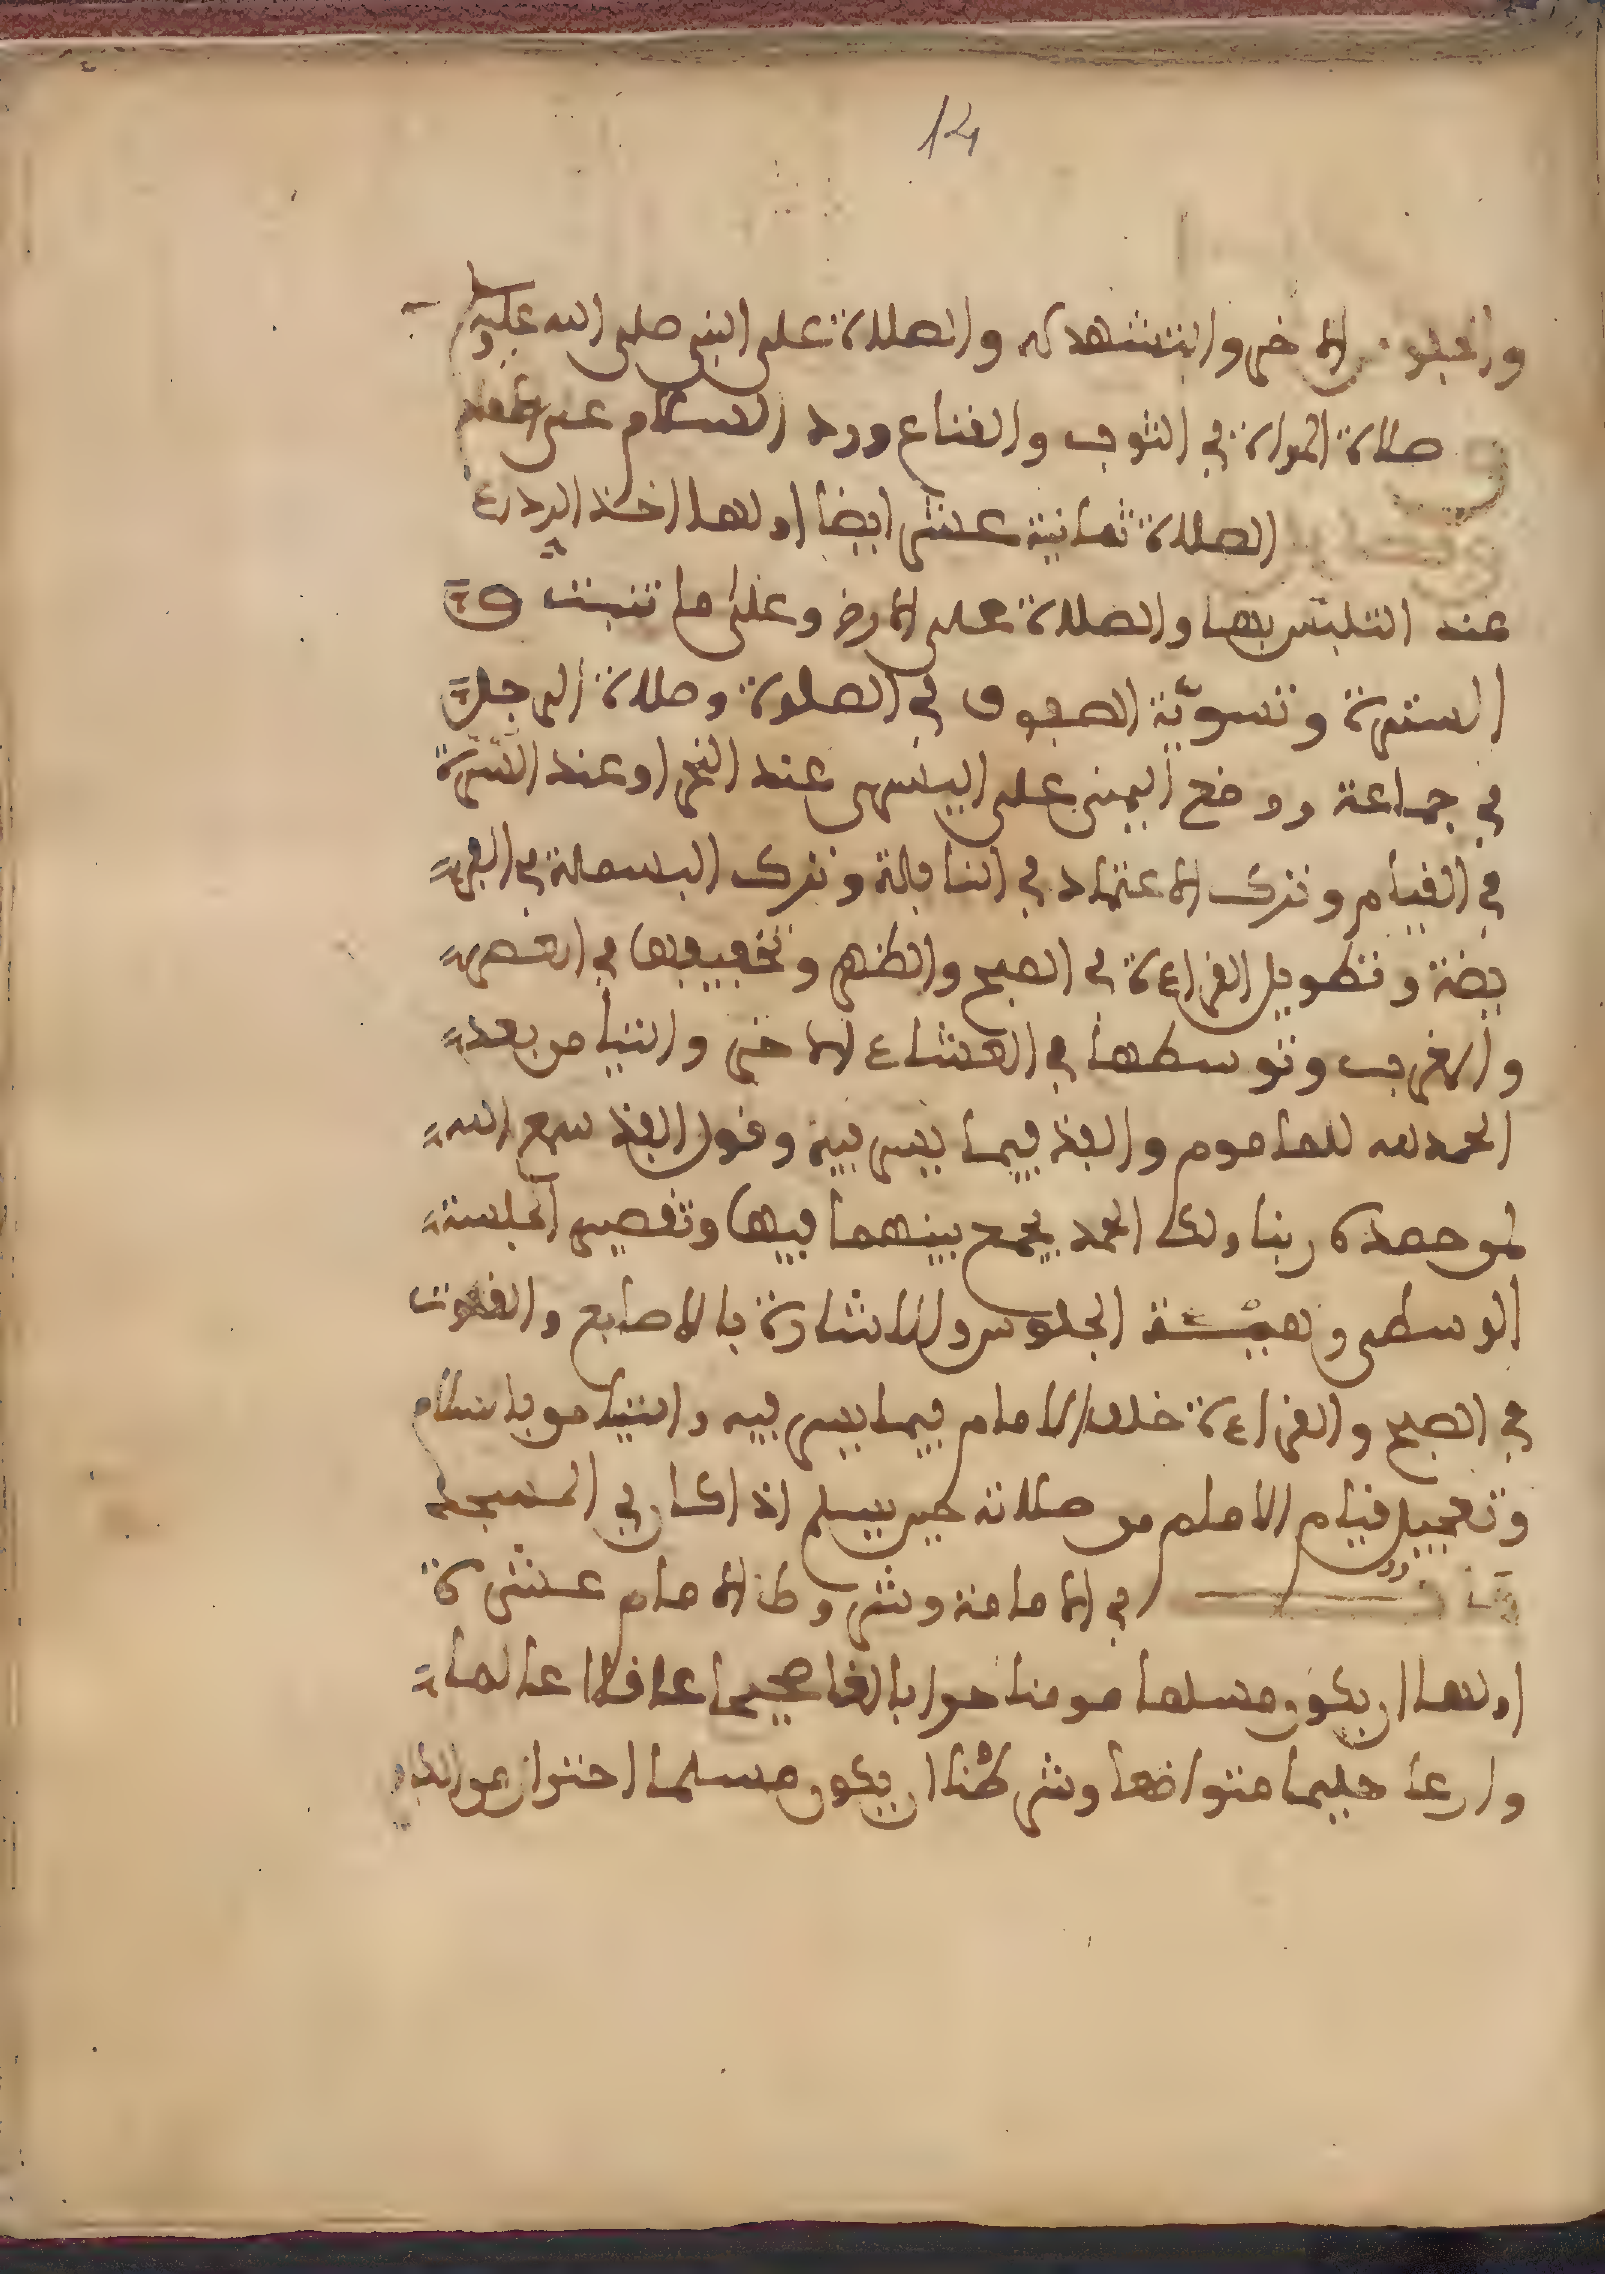 14
والجلوس الاخر والتشهد له والصلاة على النبي صلى الله عليه و
صلاة المراة في الثوب والقناع ورد السلام على
الصلاة ثمانية عشر ايضا اولها اخذ الرداء
عند التلبس بها والصلاة على الارض وعلى ما تنبت و
السترة وتسويّة الصفوف في الصلوة وصلاة الرجل
في جماعة ووضع اليمنى على اليسرى عند النحر او عند السّرة
في القيام وترك الاعتماد في النافلة وترك البسملة في الفر
يضة وتطويل القراءة في الصبح والظهر وتخفيفها في العصر
والمغرب وتوسطها في العشاء الاخر والتيامن بعد
الحمد لله للماموم والفذ فيما يسر فيه وقول الفذ سمع الله
لمن حمده ربنا ولك الحمد يجمع بينهما فيها وتقصير الجلسة
الوسطى وهيئة الجلوس والاشارة بالاصابع والقنوت
في الصبح والقراءة خلف الامام فيما يسر فيه والتيامن بالسلام
وتعجيل قيام الامام من صلاته حين يسلم اذا كان في المسجد
في الامامة وشروط الامام عشرة
اولها ان يكون مسلما مومنا حرا بالغا صحيحا عاقلا عالما
وارعا حليما متواضعا وشرطنا ان يكون مسلما احترازا من